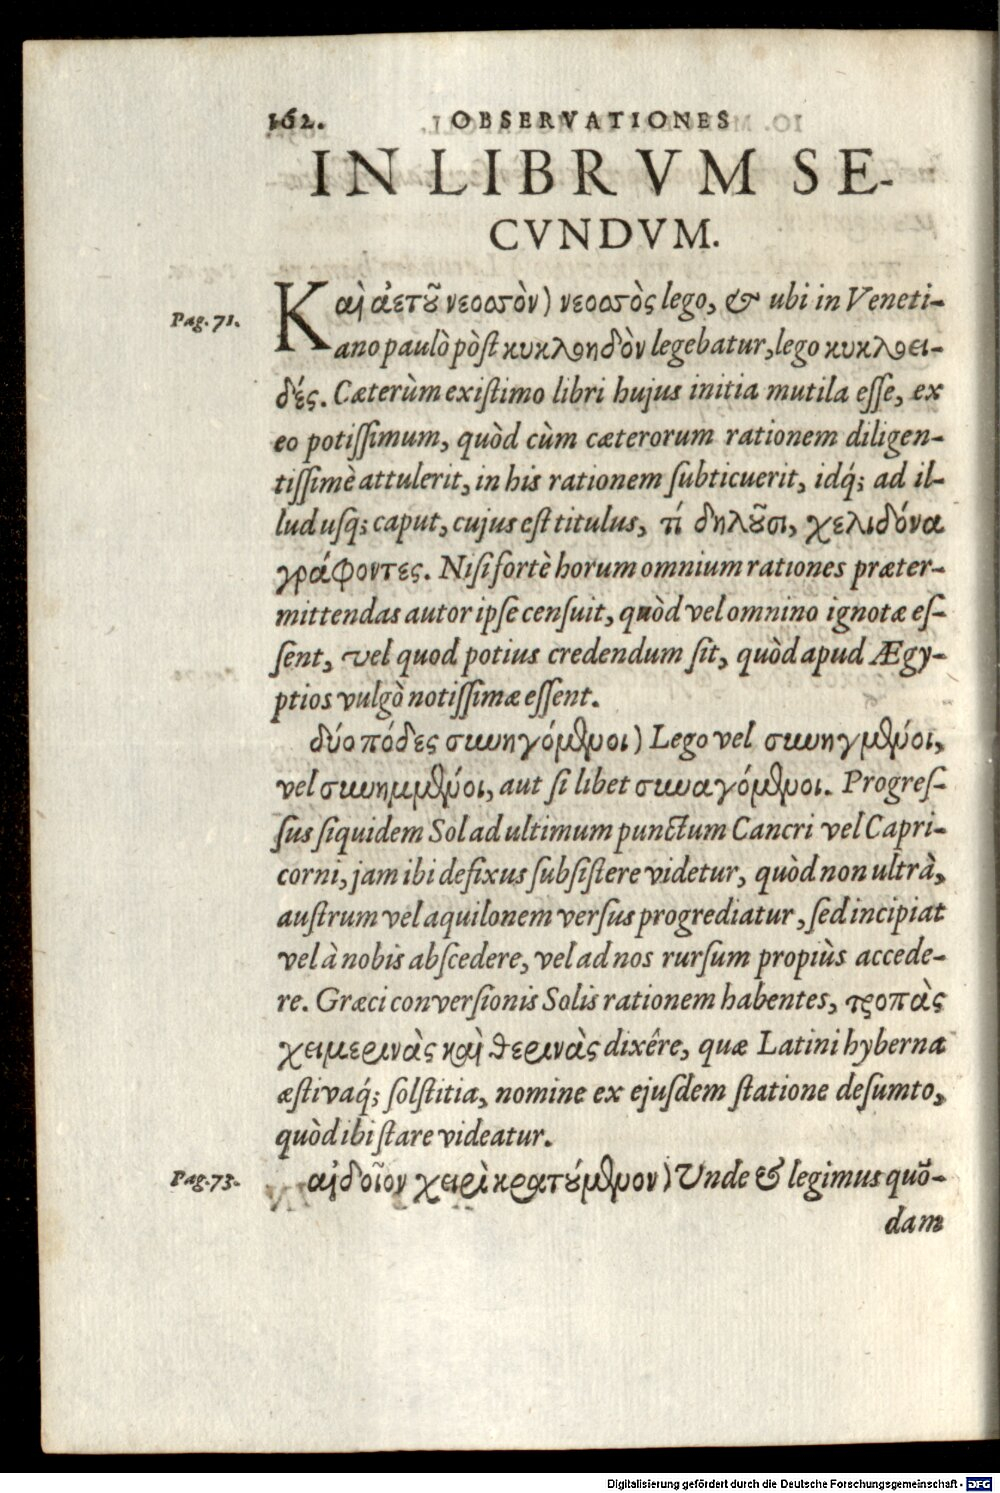 162. OBSERVATIONES
IN LIBRVM SE-
CVNDVM.
Pag. 71.
Καὶ ἀετοῦ νεοσσὸν) νεοσσὸς lego, & ubi in Veneti-
ano paulò pòst κυκλοηδὸν legebatur, lego κυκλοει-
δές. Cæterùm existimo libri hujus initia mutila esse, ex
eo potissimum, quòd cùm cæterorum rationem diligen-
tissimè attulerit, in his rationem subticuerit, idq́; ad il-
lud usq; caput, cujus est titulus, τί δηλοῦσι, χελιδόνα
γράφοντες. Nisi fortè horum omnium rationes præter-
mittendas autor ipse censuit, quòd vel omnino ignotæ es-
sent, vel quod potius credendum sit, quòd apud Ægy-
ptios vulgò notissimæ essent.
δύο πόδες συνηγόμενοι) Lego vel συνηγμένοι,
vel συνημμένοι, aut si libet συναγόμενοι. Progres-
sus siquidem Sol ad ultimum punctum Cancri vel Capri-
corni, jam ibi defixus subsistere videtur, quòd non ultrà,
austrum vel aquilonem versus progrediatur, sed incipiat
vel à nobis abscedere, vel ad nos rursum propiùs accede-
re. Græci conversionis Solis rationem habentes, τροπὰς
χειμερινὰς καὶ θερινὰς dixêre, quæ Latini hyberna
æstivaq́; solstitia, nomine ex ejusdem statione desumto,
quòd ibi stare videatur.
Pag. 73.
αἰδοῖον χειρὶ κρατούμενον) Unde & legimus quõ-
dam
Digitalisierung gefördert durch die Deutsche Forschungsgemeinschaft - DFG